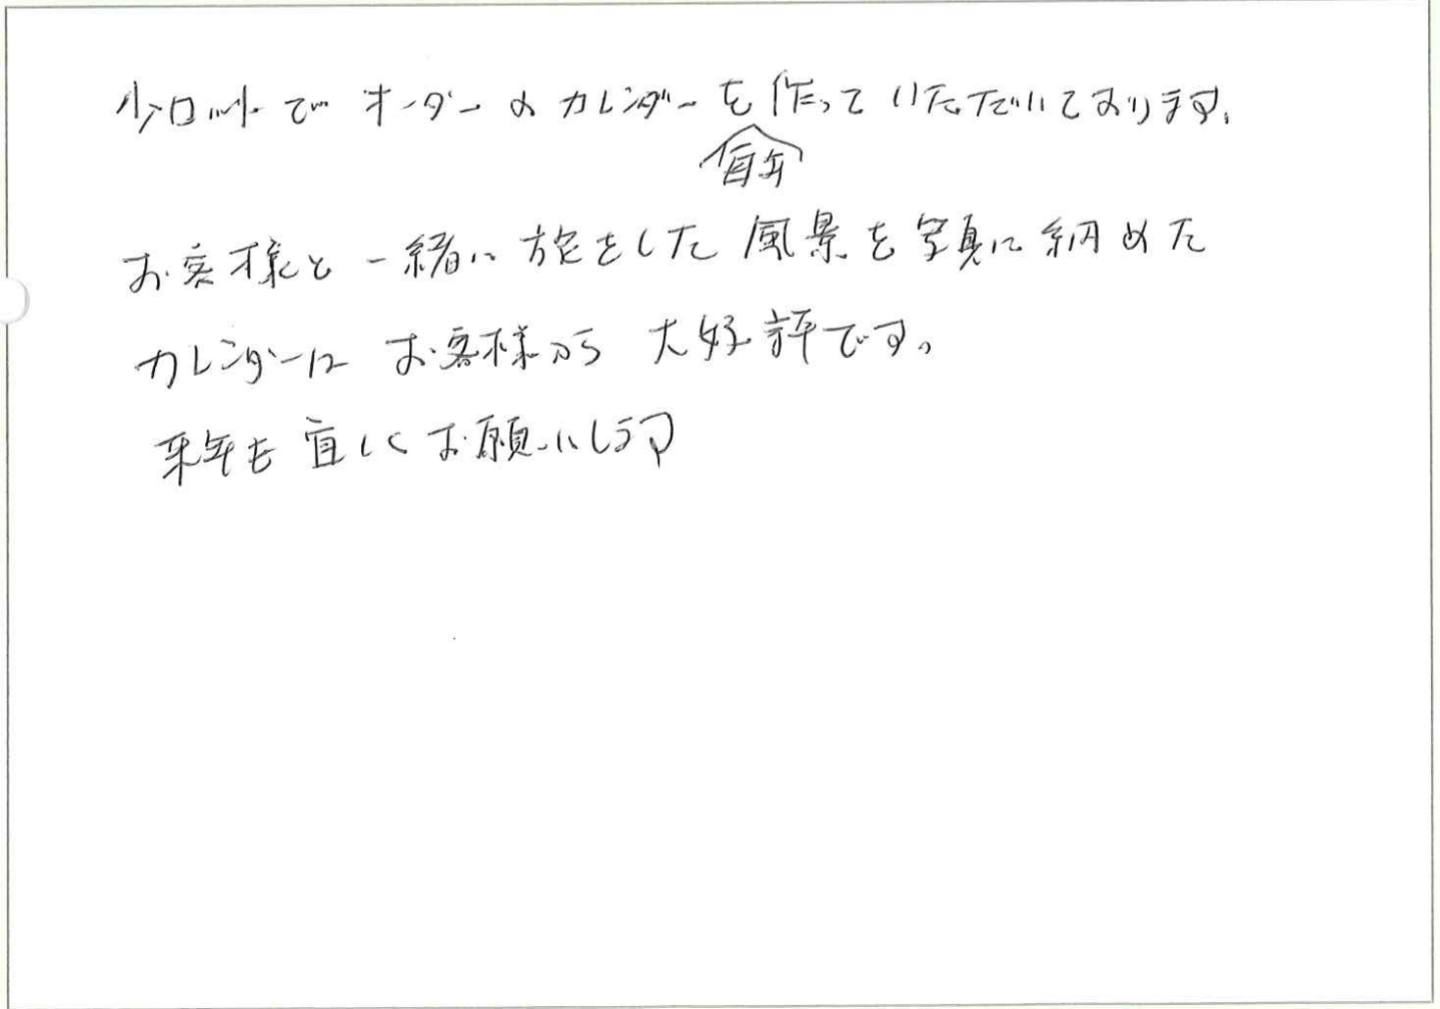 少ロットでオーダーのカレンダーを毎年作っていただいております。
お客様と一緒に旅をした風景を写真に納めた
カレンダーは お客様から 大好評です。
来年も宜しくお願いします